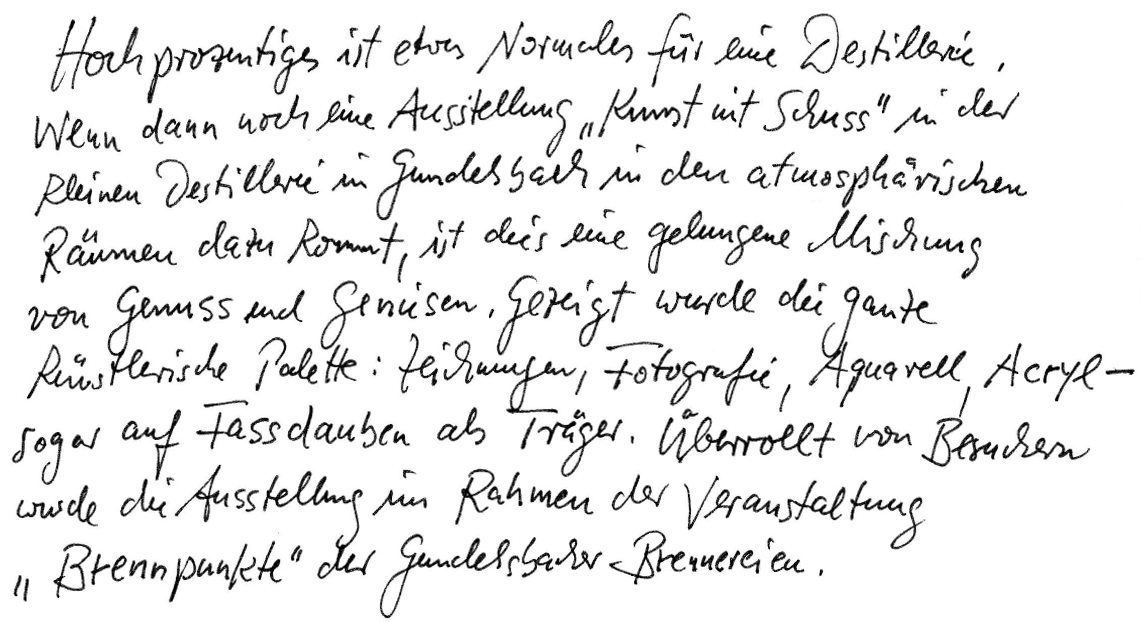 Hochprozentiges ist etwas Normales für eine Destillerie.
Wenn dann noch eine Ausstellung „Kunst mit Schuss“ in der
kleinen Destillerie in Gundelsbach in den atmosphärischen
Räumen dazu kommt, ist dies eine gelungene Mischung
von Genuss und Genüssen. Gezeigt wurde die ganze
künstlerische Palette: Zeichnungen, Fotografie, Aquarell, Acryl –
sogar auf Fassdauben als Träger. Überrollt von Besuchern
wurde die Ausstellung im Rahmen der Veranstaltung
„Brennpunkte“ der Gundelsbacher-Brennereien.